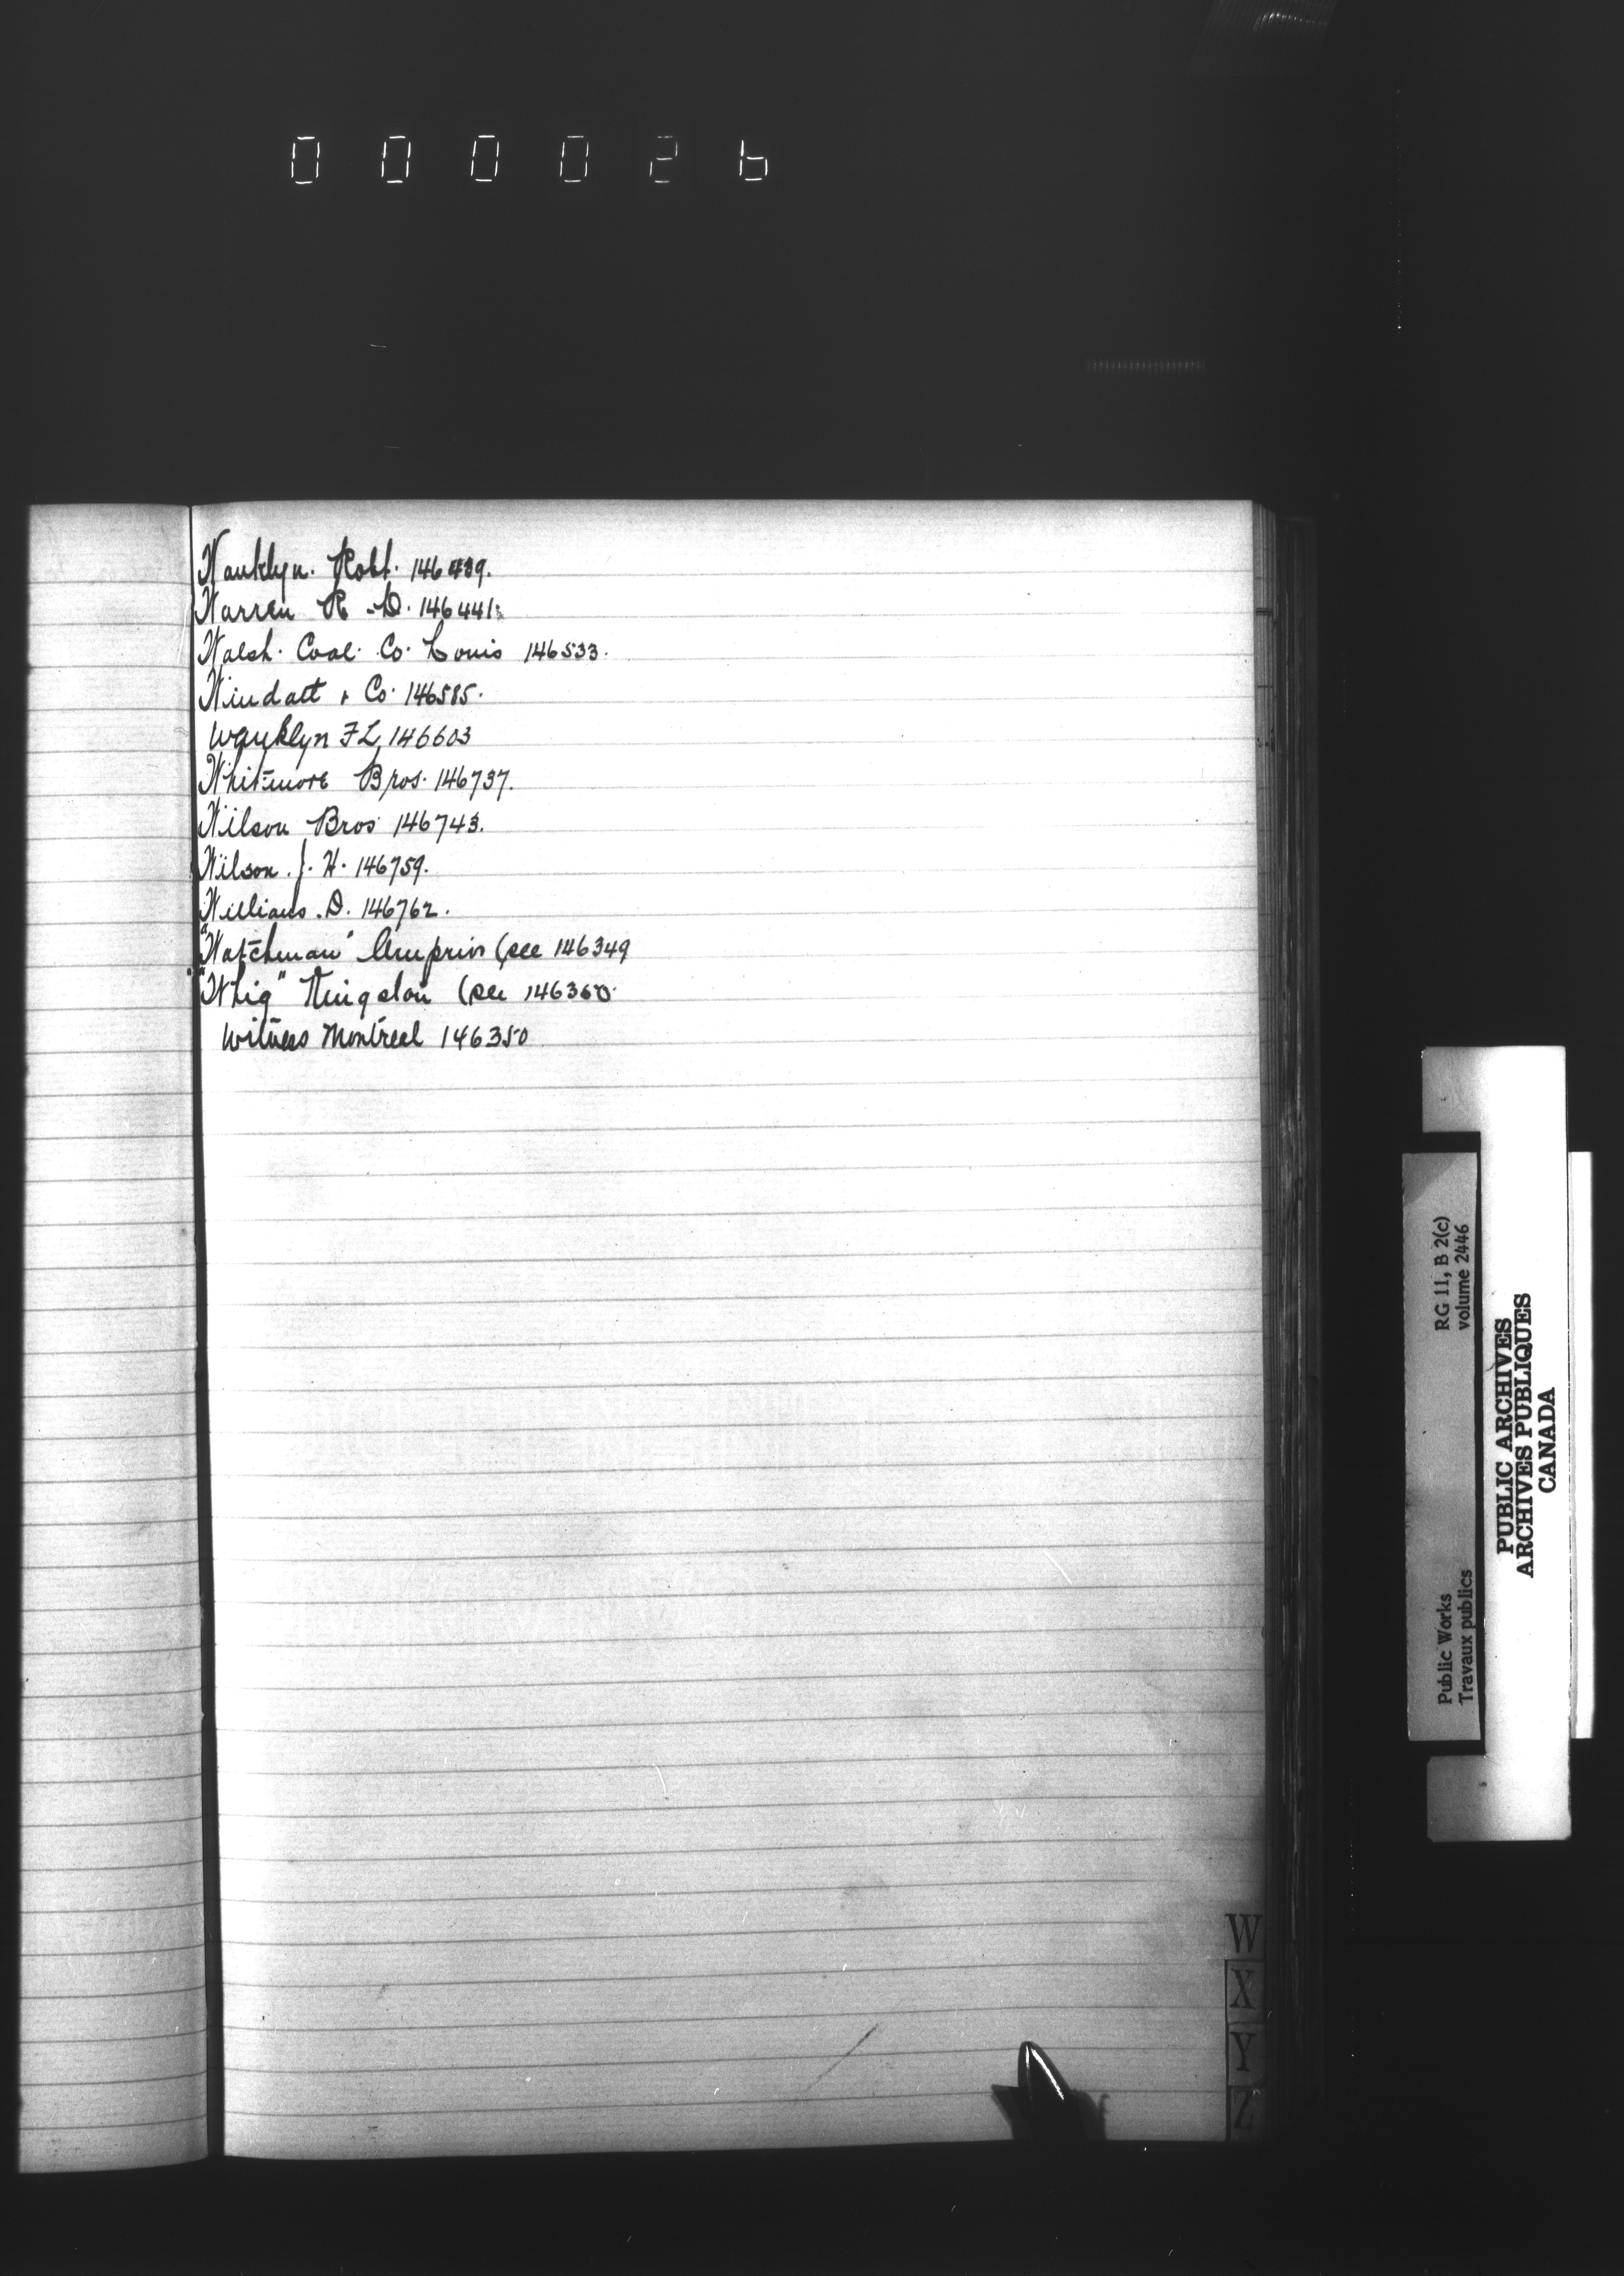 000026
Wanklyn. Robt. 146439.
Warren R. D. 146441.
Walsh. Coal. Co. Louis 146533.
Windatt & Co. 146585.
Wanklyn FL 146603
Whitmore Bros. 146737.
Wilson Bros 146743.
Wilson. J. H. 146759.
Williams. D. 146762.
"Watchman" Arnprior (see 146349
"Whig" Kingston (see 146350
Witness Montreal 146350
W
X
Y
Z
Public Works
Travaux publics
RG 11, B 2(c)
volume 2446
PUBLIC ARCHIVES
ARCHIVES PUBLIQUES
CANADA